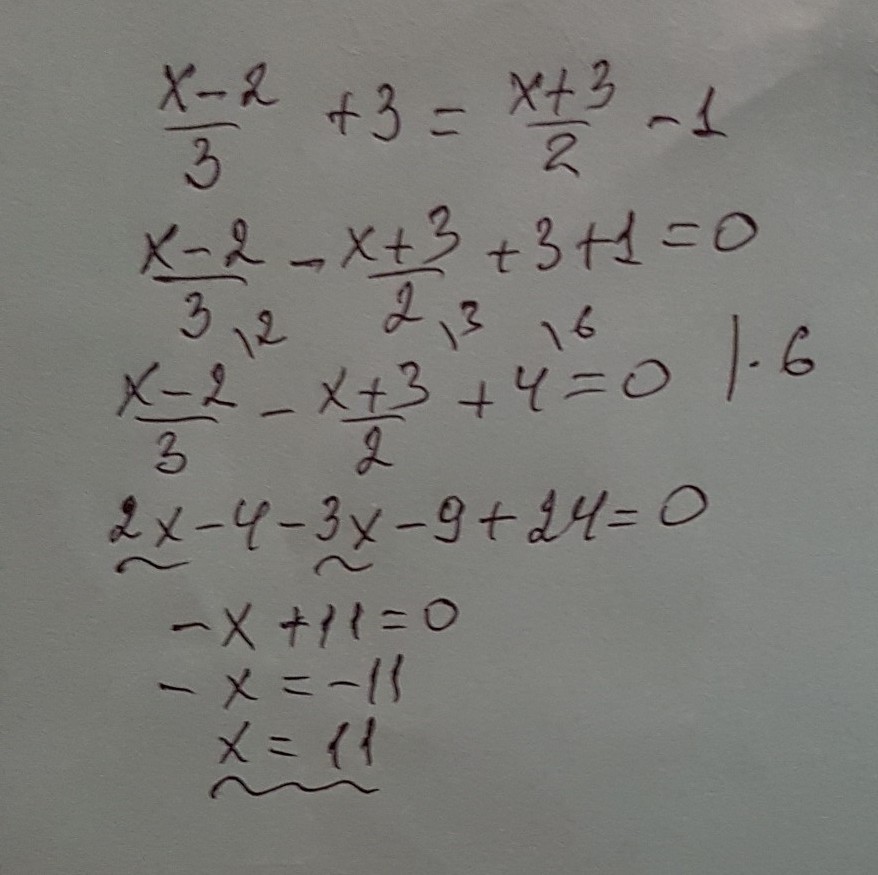 x-2/3 + 3 = x+3/2 - 1
x-2/3 - x+3/2 + 3 + 1 = 0
\2 \3 \6
x-2/3 - x+3/2 + 4 = 0 | · 6
2x - 4 - 3x - 9 + 24 = 0
-x + 11 = 0
-x = -11
x = 11